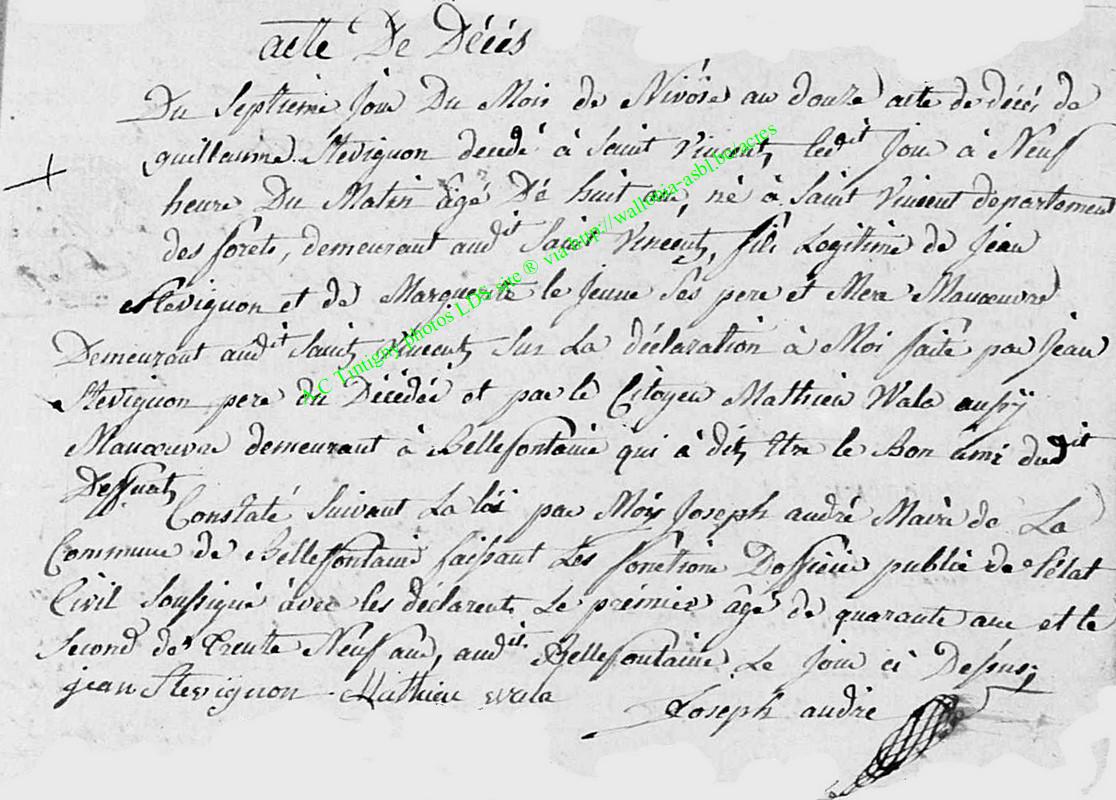 acte De Décés
Du Septieme Jour Du Mois de Nivôse an douze acte de décés de
guillaume Stévignon decedé à Saint Vincent, ledit Jour à Neuf
heure Du Matin âgé Dé huit ans, né à Saint Vincent departement
des forêts, demeurant audit Saint Vincent, fils Legitime de Jean
Stevignon et de Marguerite le Jeune Sés pere et Mere Manoeuvre
Demeurant audit Saint Vincent Sur La déclaration à Moi faite par Jean
Stevignon pere du Décédée et par le Citoyen Mathieu Wala aussÿ
Manoeuvre demeurant à Bellefontaine qui à dit, Etre le Bon ami dudit
Deffunt,
Constaté Suivant La loi par Moÿ Joseph andré Maire de La
Commune de Bellefontaine faissant Les fonctions Dofficier public de l'état
Civil Soussigné avec les déclarent, Le prémier âgé de quarante ans et le
Second de Trente Neuf ans, audit Bellefontaine Le Jour ci Dessus,
jean Stevignon Mathieu wala
Joseph andré
A.C Tintigny photos LDS site ® via http://wallonia-asbl.be/actes